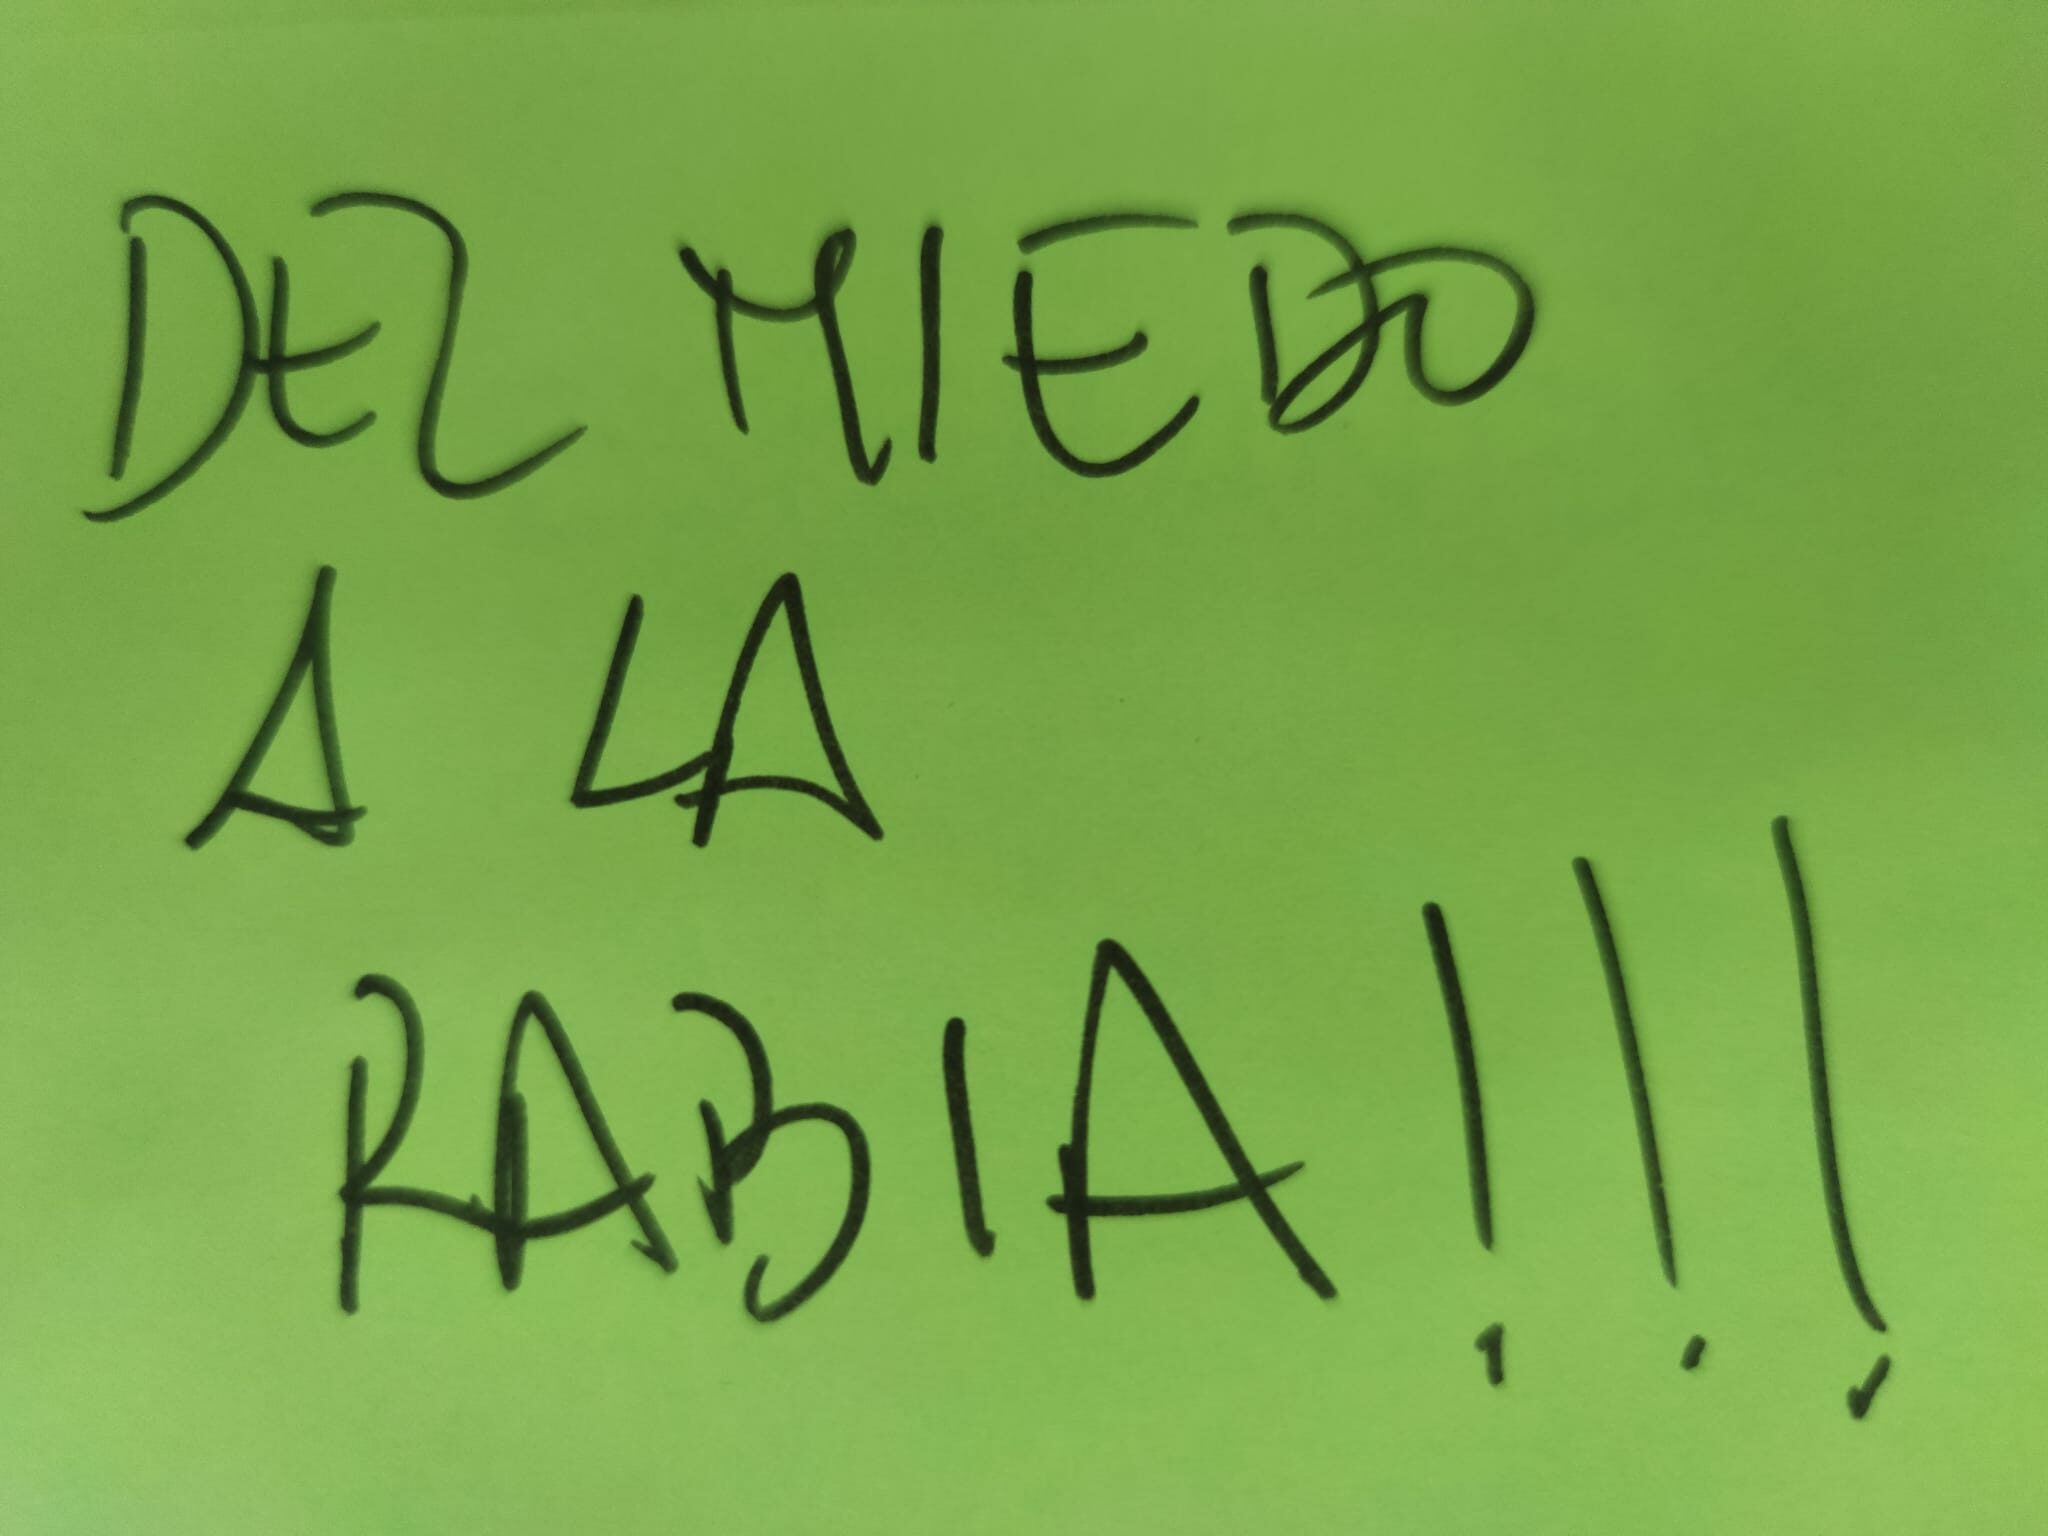 DEL MIEDO
A LA
RABIA!!!